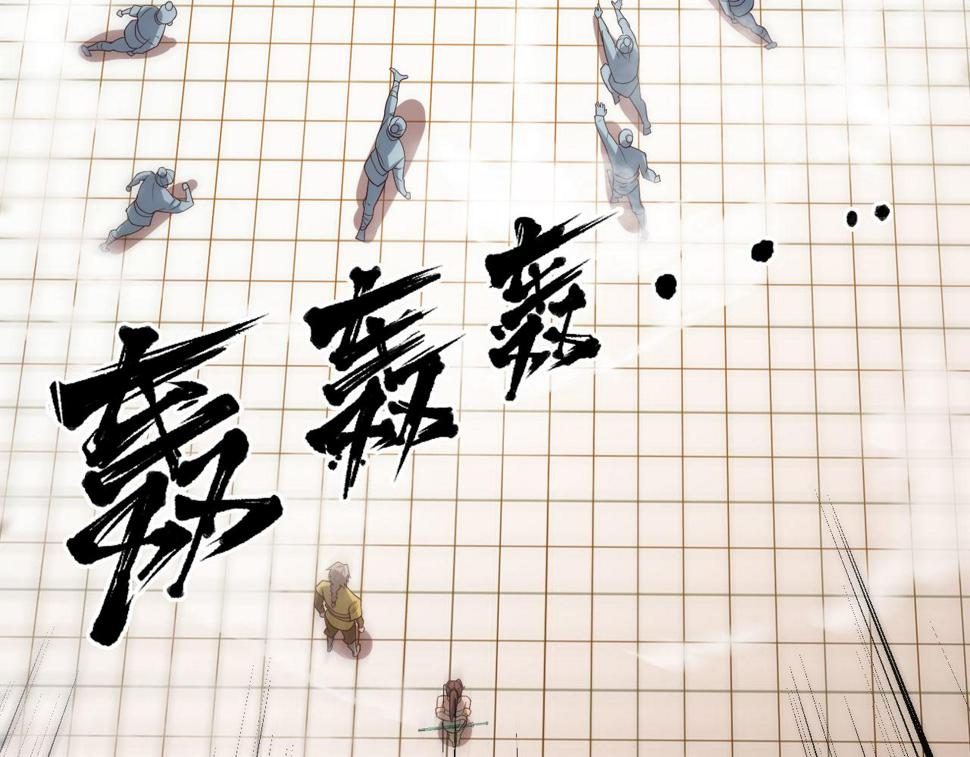 轰轰轰....